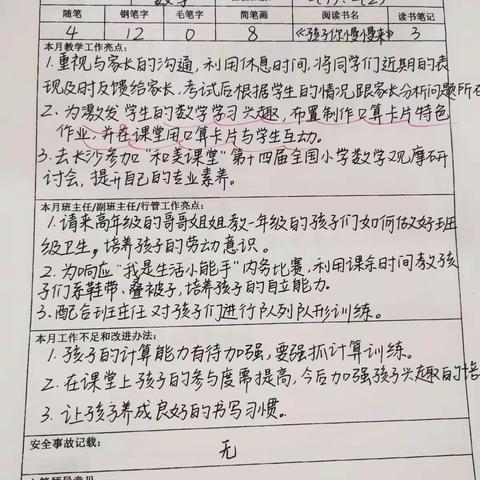 数学
随笔 钢笔字 毛笔字 简笔画 阅读书名 读书笔记
4 12 0 8 《孩子你慢慢来》 3
本月教学工作亮点:
1.重视与家长的沟通,利用休息时间,将同学们近期的表
现及时反馈给家长,考试后根据学生的情况跟家长分析问题所在
2.为激发学生的数学学习兴趣,布置制作口算卡片特色
作业,并在课堂用口算卡片与学生互动。
3.去长沙参加“和美课堂”第十四届全国小学数学观摩研
讨会,提升自己的专业素养。
本月班主任/副班主任/行管工作亮点:
1.请来高年级的哥哥姐姐教一年级的孩子们如何做好班
级卫生,培养孩子的劳动意识。
2.为响应“我是生活小能手”内务比赛,利用课余时间教孩
子们系鞋带、叠被子,培养孩子的自立能力。
3.配合班主任对孩子们进行队列队形训练。
本月工作不足和改进办法:
1.孩子的计算能力有待加强,要强抓计算训练。
2.在课堂上孩子的参与度需提高,今后加强孩子兴趣的培
3.让孩子养成良好的书写习惯。
安全事故记载:
无